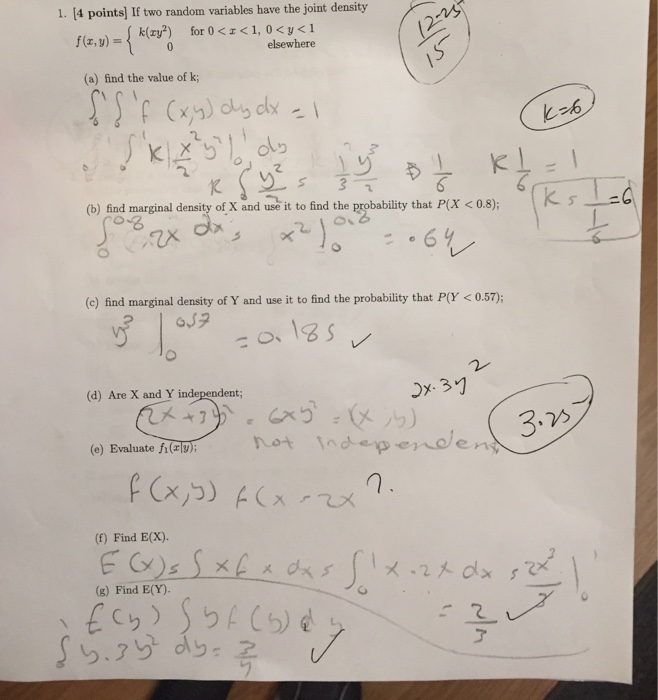 1. [4 points] If two random variables have the joint density
f(x, y) = { k(xy²) for 0 < x < 1, 0 < y < 1
0 elsewhere
12.25
15
(a) find the value of k;
∫₀¹ ∫₀¹ f (x,y) dy dx = 1
k=6
∫₀¹ k | x²/2 y² |₀¹ dy
k ∫ y²/2 = 1/3 y³/2 1/6
k 1/6 = 1
k = 1/(1/6) = 6
(b) find marginal density of X and use it to find the probability that P(X < 0.8);
∫₀^0.8 2x dx = x² |₀^0.8 = .64 ✓
(c) find marginal density of Y and use it to find the probability that P(Y < 0.57);
y³ |₀^0.57 = 0.185 ✓
(d) Are X and Y independent;
2x·3y²
2x + 3y² = 6xy² = (x, y)
3.25
not independent
(e) Evaluate f₁(x|y);
f(x,y) f(x = 2x ?.
(f) Find E(X).
E(x) = ∫ x f x dx = ∫₀¹ x · 2x dx = 2x³/3 |₀¹
(g) Find E(Y).
= 2/3 ✓
E(y) ∫ y f(y) dy
∫ y · 3y² dy = 3/4 ✓